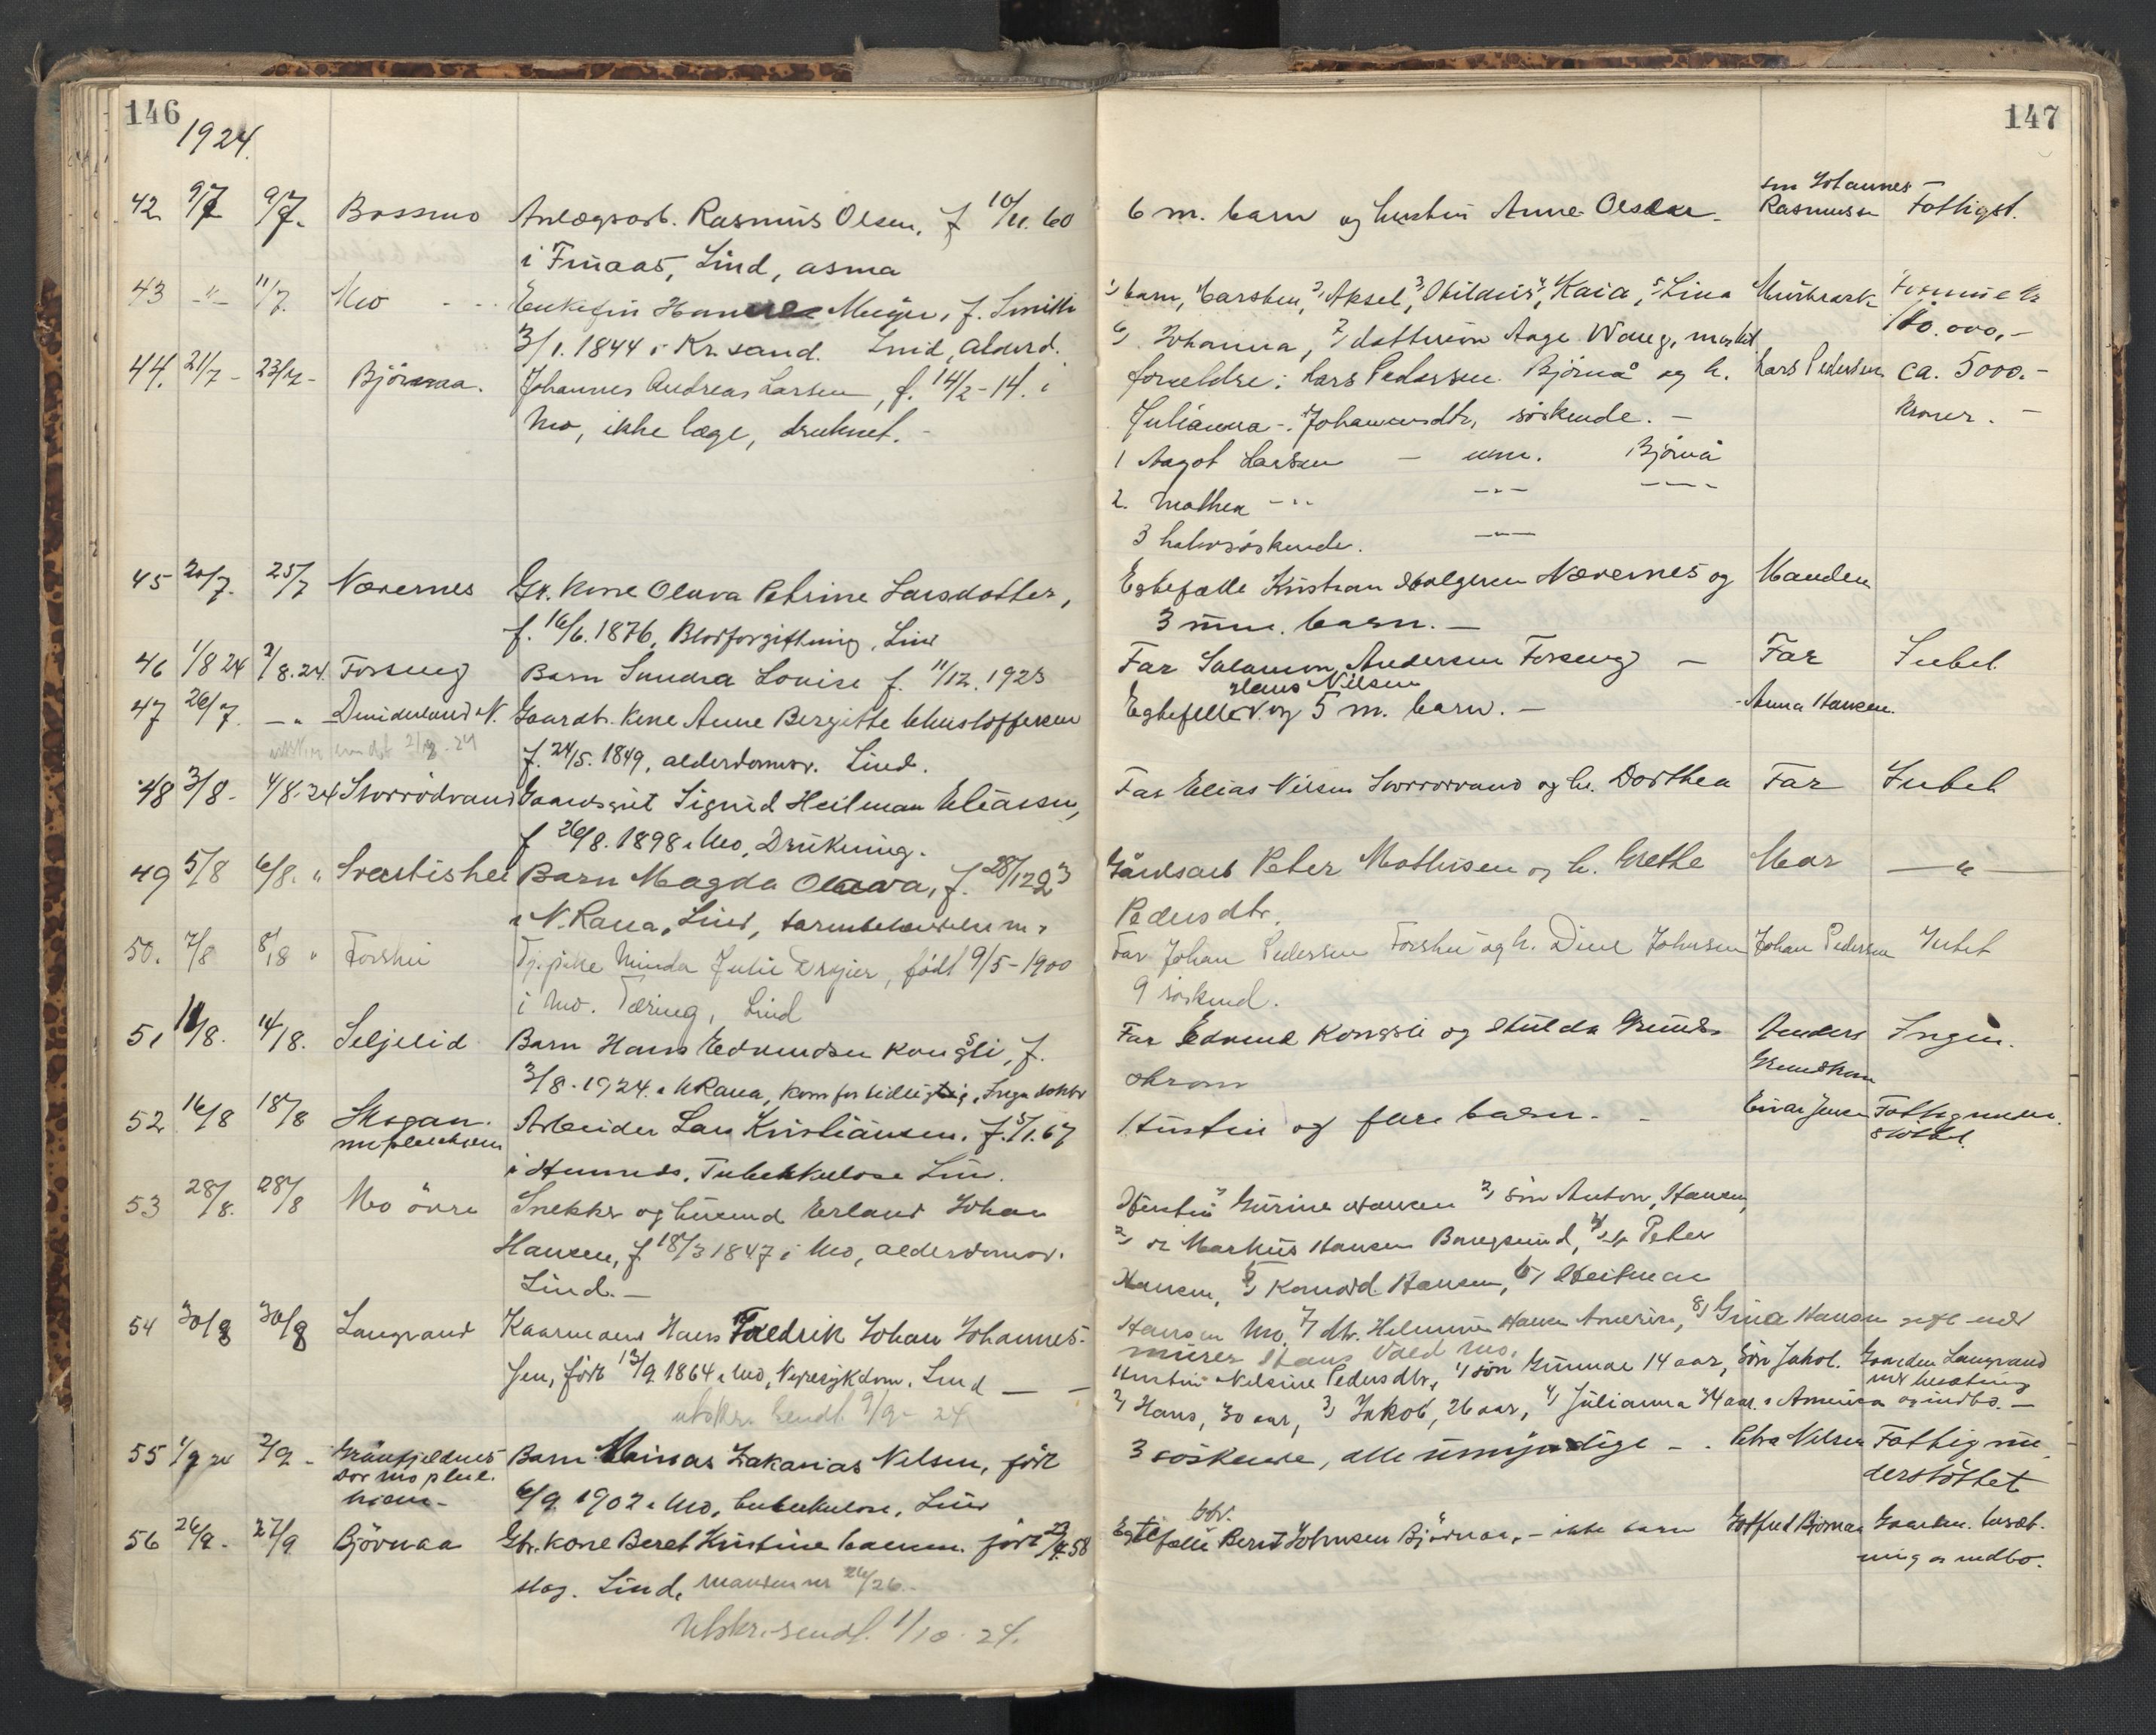 146
1924.
42 9/7 9/7. Bossmo Anlægsarb. Rasmus Olsen, f 10/11. 60
i Finaas, Lind, asma
43 -"- 11/7. Mo Enkefru Meyer, f. Smith
3/1. 1844 i Kr.sand. Lind, alderd.
44. 21/7 - 23/7 - Björnaa. Johannes Andreas Larsen, f. 14/2 - 14. i
Mo, ikke læge, druknet. -
45 20/7. 25/7 Nævernes Gr. kone Oluva Petrine Larsdatter,
f. 16/6. 1876, Blodforgiftning, Lind
46 1/8 24 2/8. 24. Forseng Barn Sandra Louise f. 11/12. 1923
47 26/7. -"- Dunderland N. Gaardbr. kone Anne Bergitte Christoffersen
2/8 - 24 f. 24/5. 1849, alderdomssv. Lind.
48 3/8 - 4/8. 24 Gaardsgut Sigurd Heitman Eliassen,
f 26/8. 1898 i Mo, Drukning.
49 5/8 6/8. " Svartishei Barn Magda Olava, f. 28/12 23
i N. Rana, Lind,
50. 7/8 8/8 " Forshei Tj. pike Minda Julie , født 9/5 - 1900
i Mo. Tæring, Lind
51 11/8. 14/8. Seljelid Barn Hans Edvardsen Kongsli, f.
3/8. 1924. i N Rana, kom for tidlig, Ingen doktor
52 16/8 18/8 Skogan. Arbeider Lars Kristiansen. f. 5/1. 67
m pleiehjem i Hemnes. Tuberkulose Lind.
53 28/8. 28/8 Mo övre Snekker og husmand Erland Johan
Hansen, f 18/3 1847 i Mo, alderdomssv.
Lind. -
54 30/8 30/8 Langvand Kaarmand Hans Fredrik Johan Johannes-
sen, født 13/9 1864 i Mo, Nyresykdom. Lind - -
utskr. sendt 9/9 - 24
55 1/9 24 2/9 - Grönfjeldnes Barn Zakarias Nilsen, født
for Mo pleie
hjem - 6/9 1902 i Mo, tuberkulose, Lind
56 26/9 - 27/9 Björnaa Gbr. kone Beret Kristine født 58
slag. Lind, manden nr 26/26.
Utskr. sendt. 1/10 - 24.
147
6 m. barn og hustru Anne Olsen - sön Johannes Rasmussen Fattigst.
1) barn, Carsten, 2) Aksel, 3) 4) Kaia, 5) Lina Formue kr
6) Johanna, 7) Aage Waug, 180.000,-
forældre: Lars Pedersen Björnå og h. Lars Pedersen ca. 5000. -
Julianna - Johannesdtr, söskende. - kroner. -
1 Aagot Larsen - um. Björnå
2. Mathea - " - " - " -
3 halvsöskende. - " -
Egtefælle Kristian Holgersen Nævernes og Manden
3 um. barn. -
Far Salamon Andersen Forseng - Far Intet
Hans Nilsen
Egtefælle og 5 m. barn. - Anna Hansen.
Far Elias Nilsen og h. Dorthea Far Intet
Gårdsarb Peter Mathisen og h. Grethe Mor - " -
Pedersdtr.
Far Johan Pedersen Forshei og h. Dine Johnsen Johan Pedersen Intet
9 söskend.
Far Edvard Kongsli og Hulda Anders Ingen.
Hustru og flere barn. - Einar Jensen Fattigunder-
stöttet.
Hustru Gurine Hansen 2) sön Anton, Hansen,
3) Markus Hansen Bangsund, 4) Peter
Hansen, 5) Konrad Hansen, 6) Heitman
Hansen Mo, 7) dtr. Hansen Amerika, 8) Gina Hansen gift med
murer Hans Mo.
Hustru Nilsine Pedersdtr, 1) sön Gunnar 14 aar, Sön Jakob. Gaarden Langvand
med besætning
2) Hans, 30 aar, 3) Jakob, 26 aar, 4) Julianna 34 aar i Amerika og indbo. -
3 söskende, alle umyndige - . Petra Nilsen Fattigun-
derstöttet
Gbr.
Egtefælle Bernt Johnsen Björnaa, - ikke barn Gotfred Björnaa Gaarden. besæt-
ning og indbo.